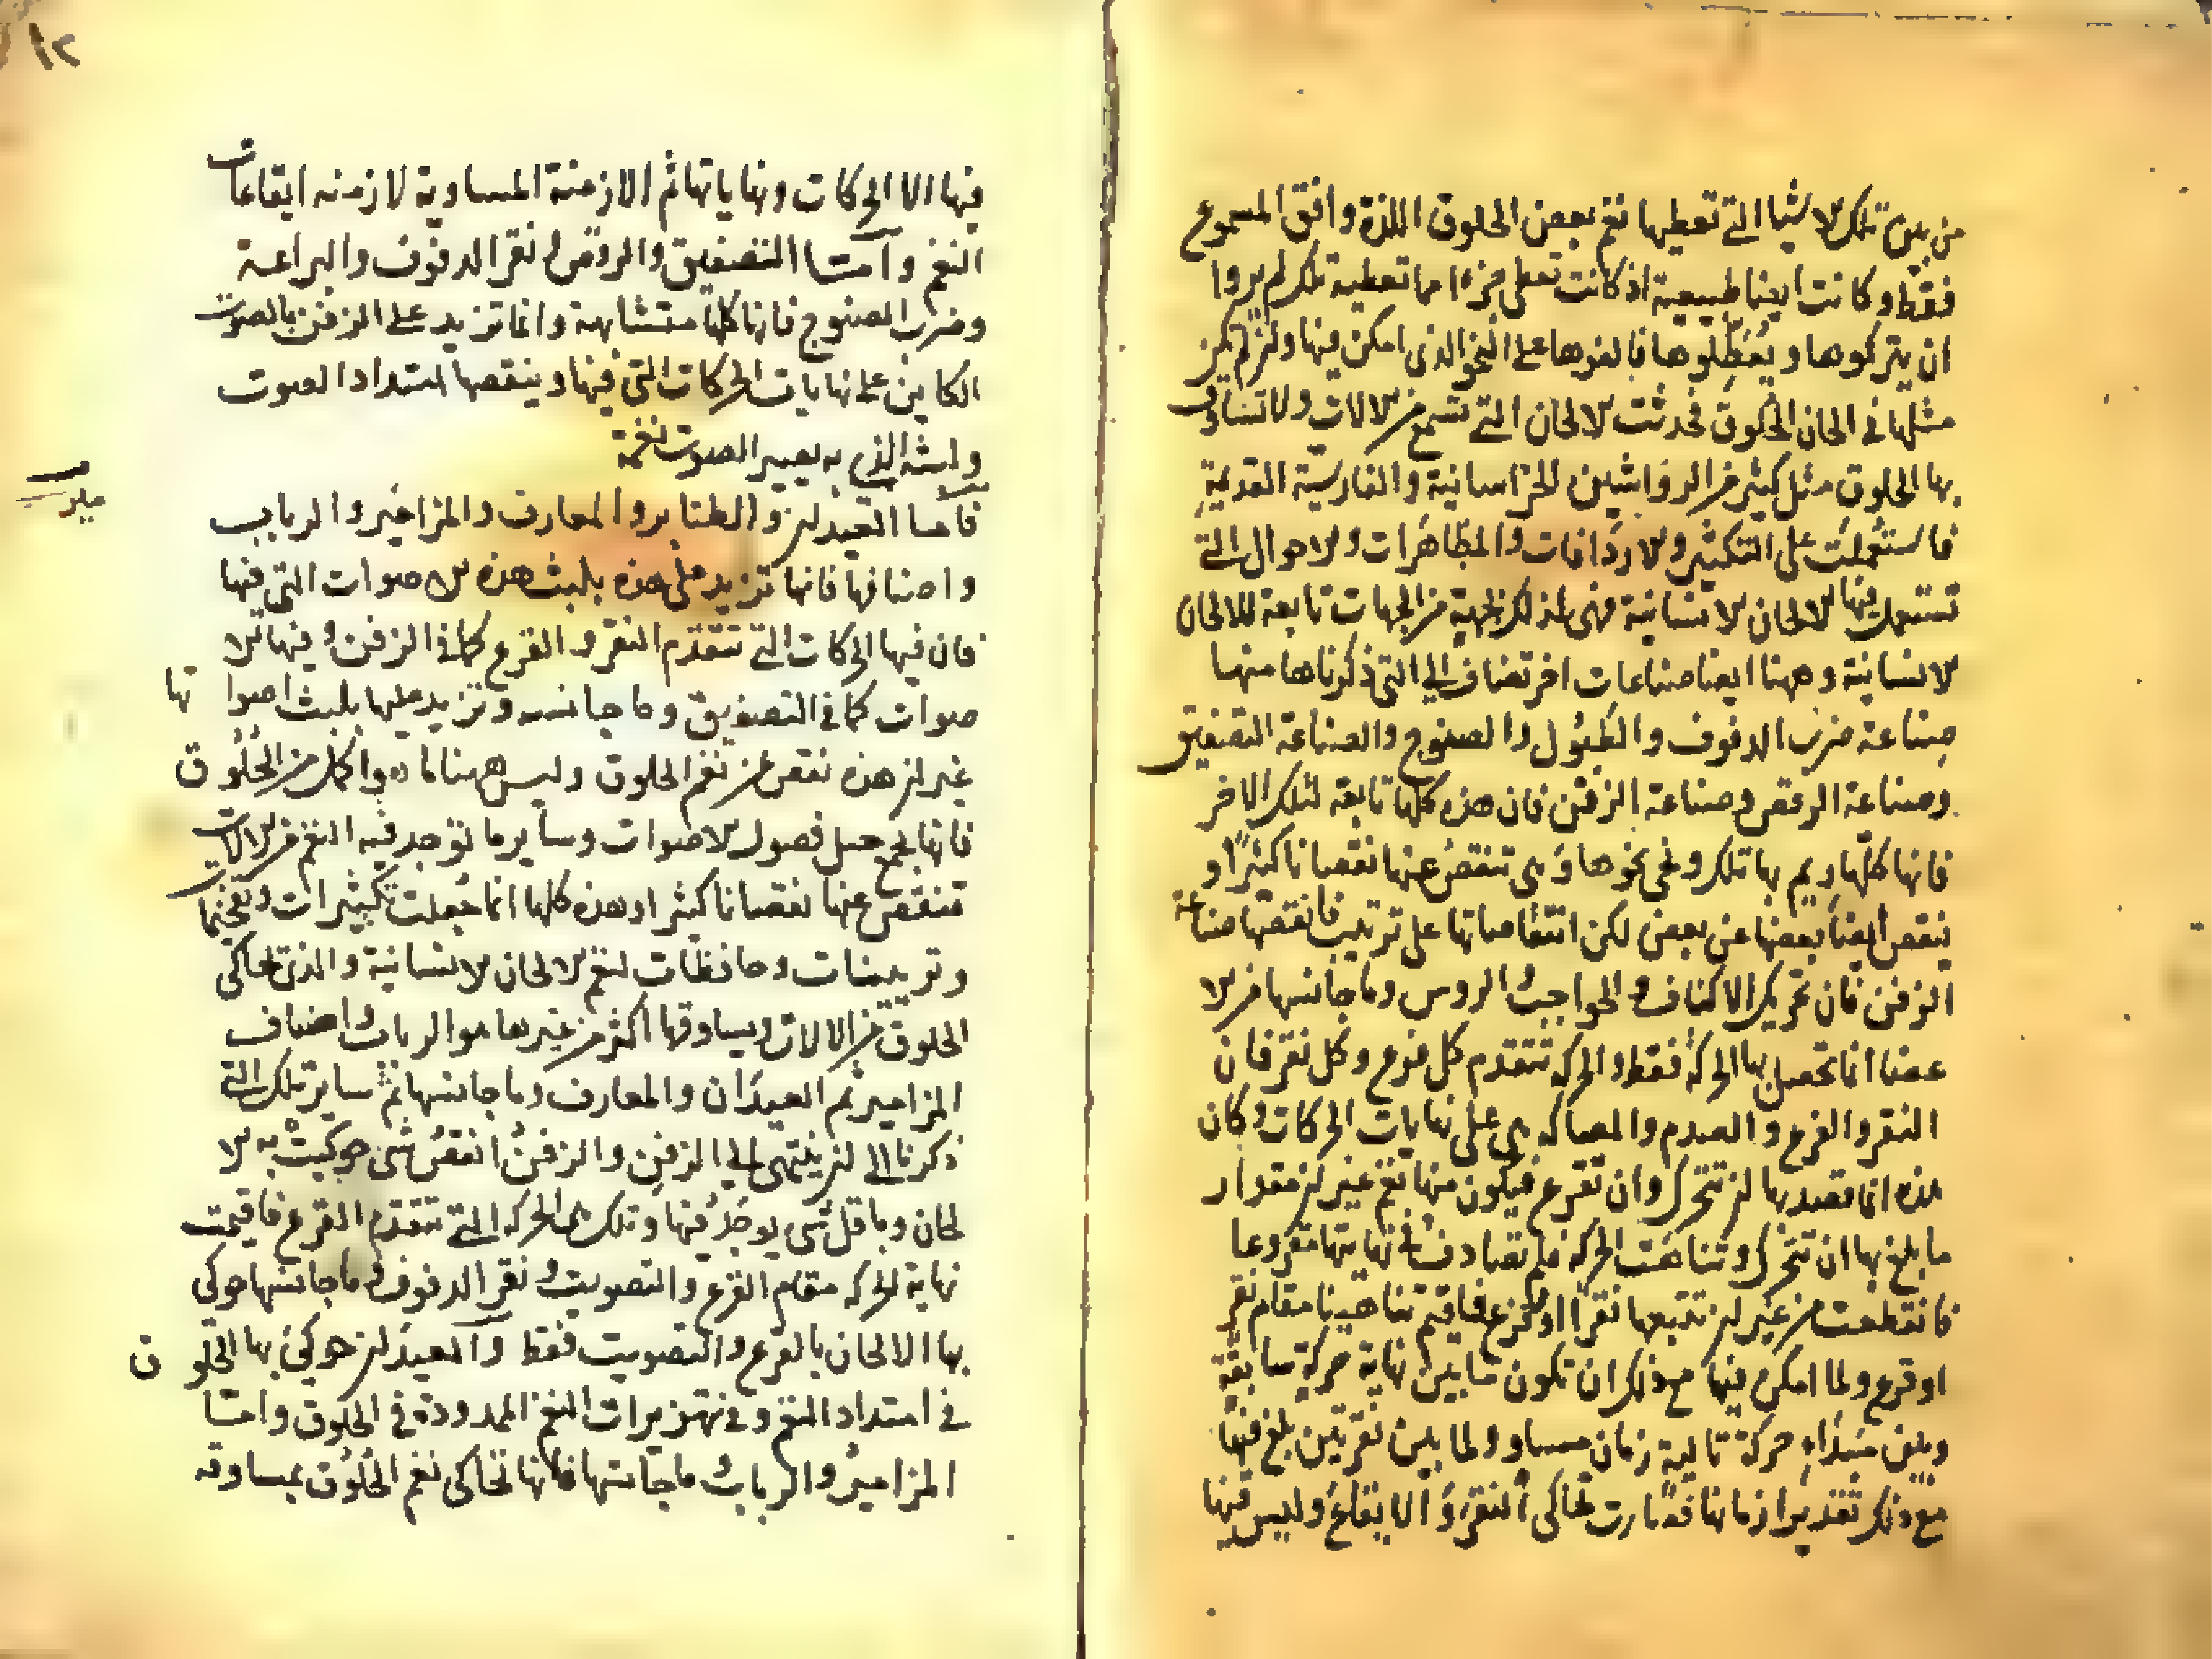 من بين تلك الاشيا التي تعطيها نغم بعض الحلوق اللذة وافق المسموع
فقط وكانت ايضا طبيعية اذ كانت تعطى جزءا مما تعطيه تلك لم يروا
ان يتركوها ويُعطّلوها فالفوها على النحو الذى امكن فيها ولن لم يكن
مثلها فى الحان الحلوق فحدثت الالحان التى تسمع من الالات ولا تساوق
بها الحلوق مثل كثير من الرواشين الخراسانية والفارسية القديمة
فاستعملت على التكثير والاردافات والمظاهرات والاحوال التى
تستعمل فيها الالحان الانسانية فهى لذلك بجهة من الجهات تابعة للالحان
الانسانية وههنا ايضا صناعات اخر تضاف الى التى ذكرناها منها
صناعة ضرب الدفوف والطبول والصنوج والصناعة التصفيق
وصناعة الرقص وصناعة الزفن فان هذه كلها تابعة لتلك الاخر
فانها كلها ديم بها تلك ونحى نحوها وهى تنقص عنها نقصانا كثيرًا و
ينقص ايضا بعضها عن بعض لكن انتقاصاتها على ترتيب فانقصها صناعة
الزفن فان تحريك الاكتاف والحواجب والروس وما جانسها من الا
عضا انما تحصل بها الحركة فقط والحركه تتقدم كل قرع وكل نقر فان
النقر والقرع والصدم والمصاكه هى على نهايات الحركات وكان
هذه انما قصد بها لن تتحرك وان تقرع فيكون منها نغم غير لن مقدار
ما بلغ بها ان تتحرك وتناهت الحركة فلم تصادف فى نهايتها مقروعا
فانقطعت من غير لن تتبعها نقرا او قرع فاقيم تناهيها مقام نقر
او قرع ولما امكن فيها مع ذلك ان تكون ما بين نهاية حركة سابقة
وبين مبداء حركة تالية زمان مساو لما بين نقرتين بلغ فيها
مع ذلك تقدير ازمانها فصارت تحاكى النقر والايقاع وليس فيها
١٢
فيها الا الحركات ونهاياتها ثم الازمنة المساوية لازمنه ايقاعات
النغم وامّا التصفيق والرقص ونقر الدفوف والبراعة
وضرب الصنوج فانها كلها متشابهة وانما تزيد على الزفن بالصوت
الكاين على نهايات الحركات التى فيها وينقصها امتداد الصوت
ولبثه الذى به يصير الصوت نغمة
فامّا العيدلن والطنابر والمعازف والمزامير والرباب
واصنافها فانها تزيد على هذه بلبث هذه الاصوات التى فيها
فان فيها الحركات التى تتقدم النقر والقرع كما فى الزفن وفيها الا
صوات كما فى التصفيق وما جانسه وتزيد عليها بلبث اصوا تها
غير لن هذه نقص عن نغم الحلوق وليس ههنا ما هو اكمل من الحُلُوق
فانها تجمع جميل فصول الاصوات وساير ما توجد فيه النغم من الالات
تنقص عنها نقصانا كثيرا وهذه كلها انما جُعلت تكثيرات وتفخيما
وتزيينات وحافظات لنغم الالحان الانسانية والذى يحاكى
الحلوق من الالات ويساوقها اكثر من غيرها هو الرباب واصناف
المزامير ثم العيدان والمعازف وما جانسها ثم ساير تلك التى
ذكرنا الى لن ينتهى الى الزفن والزفن انقص شى حوكيت به الا
لحان وباقل شى يوجد فيها وتلك هى الحركه التى تتقدم القرع فاقيمت
نهاية الحركه مقام القرع والتصويت ونقر الدفوف وما جانسها حوكى
بها الالحان بالقرع والتصويت فقط والعيدلن حوكى بها الحلو ق
فى امتداد النغم وفى تهزيزات النغم الممدودة فى الحلوق وامّا
المزامير والرباب وما جانسها فانها تحاكى نغم الحُلُوق بمساوقه